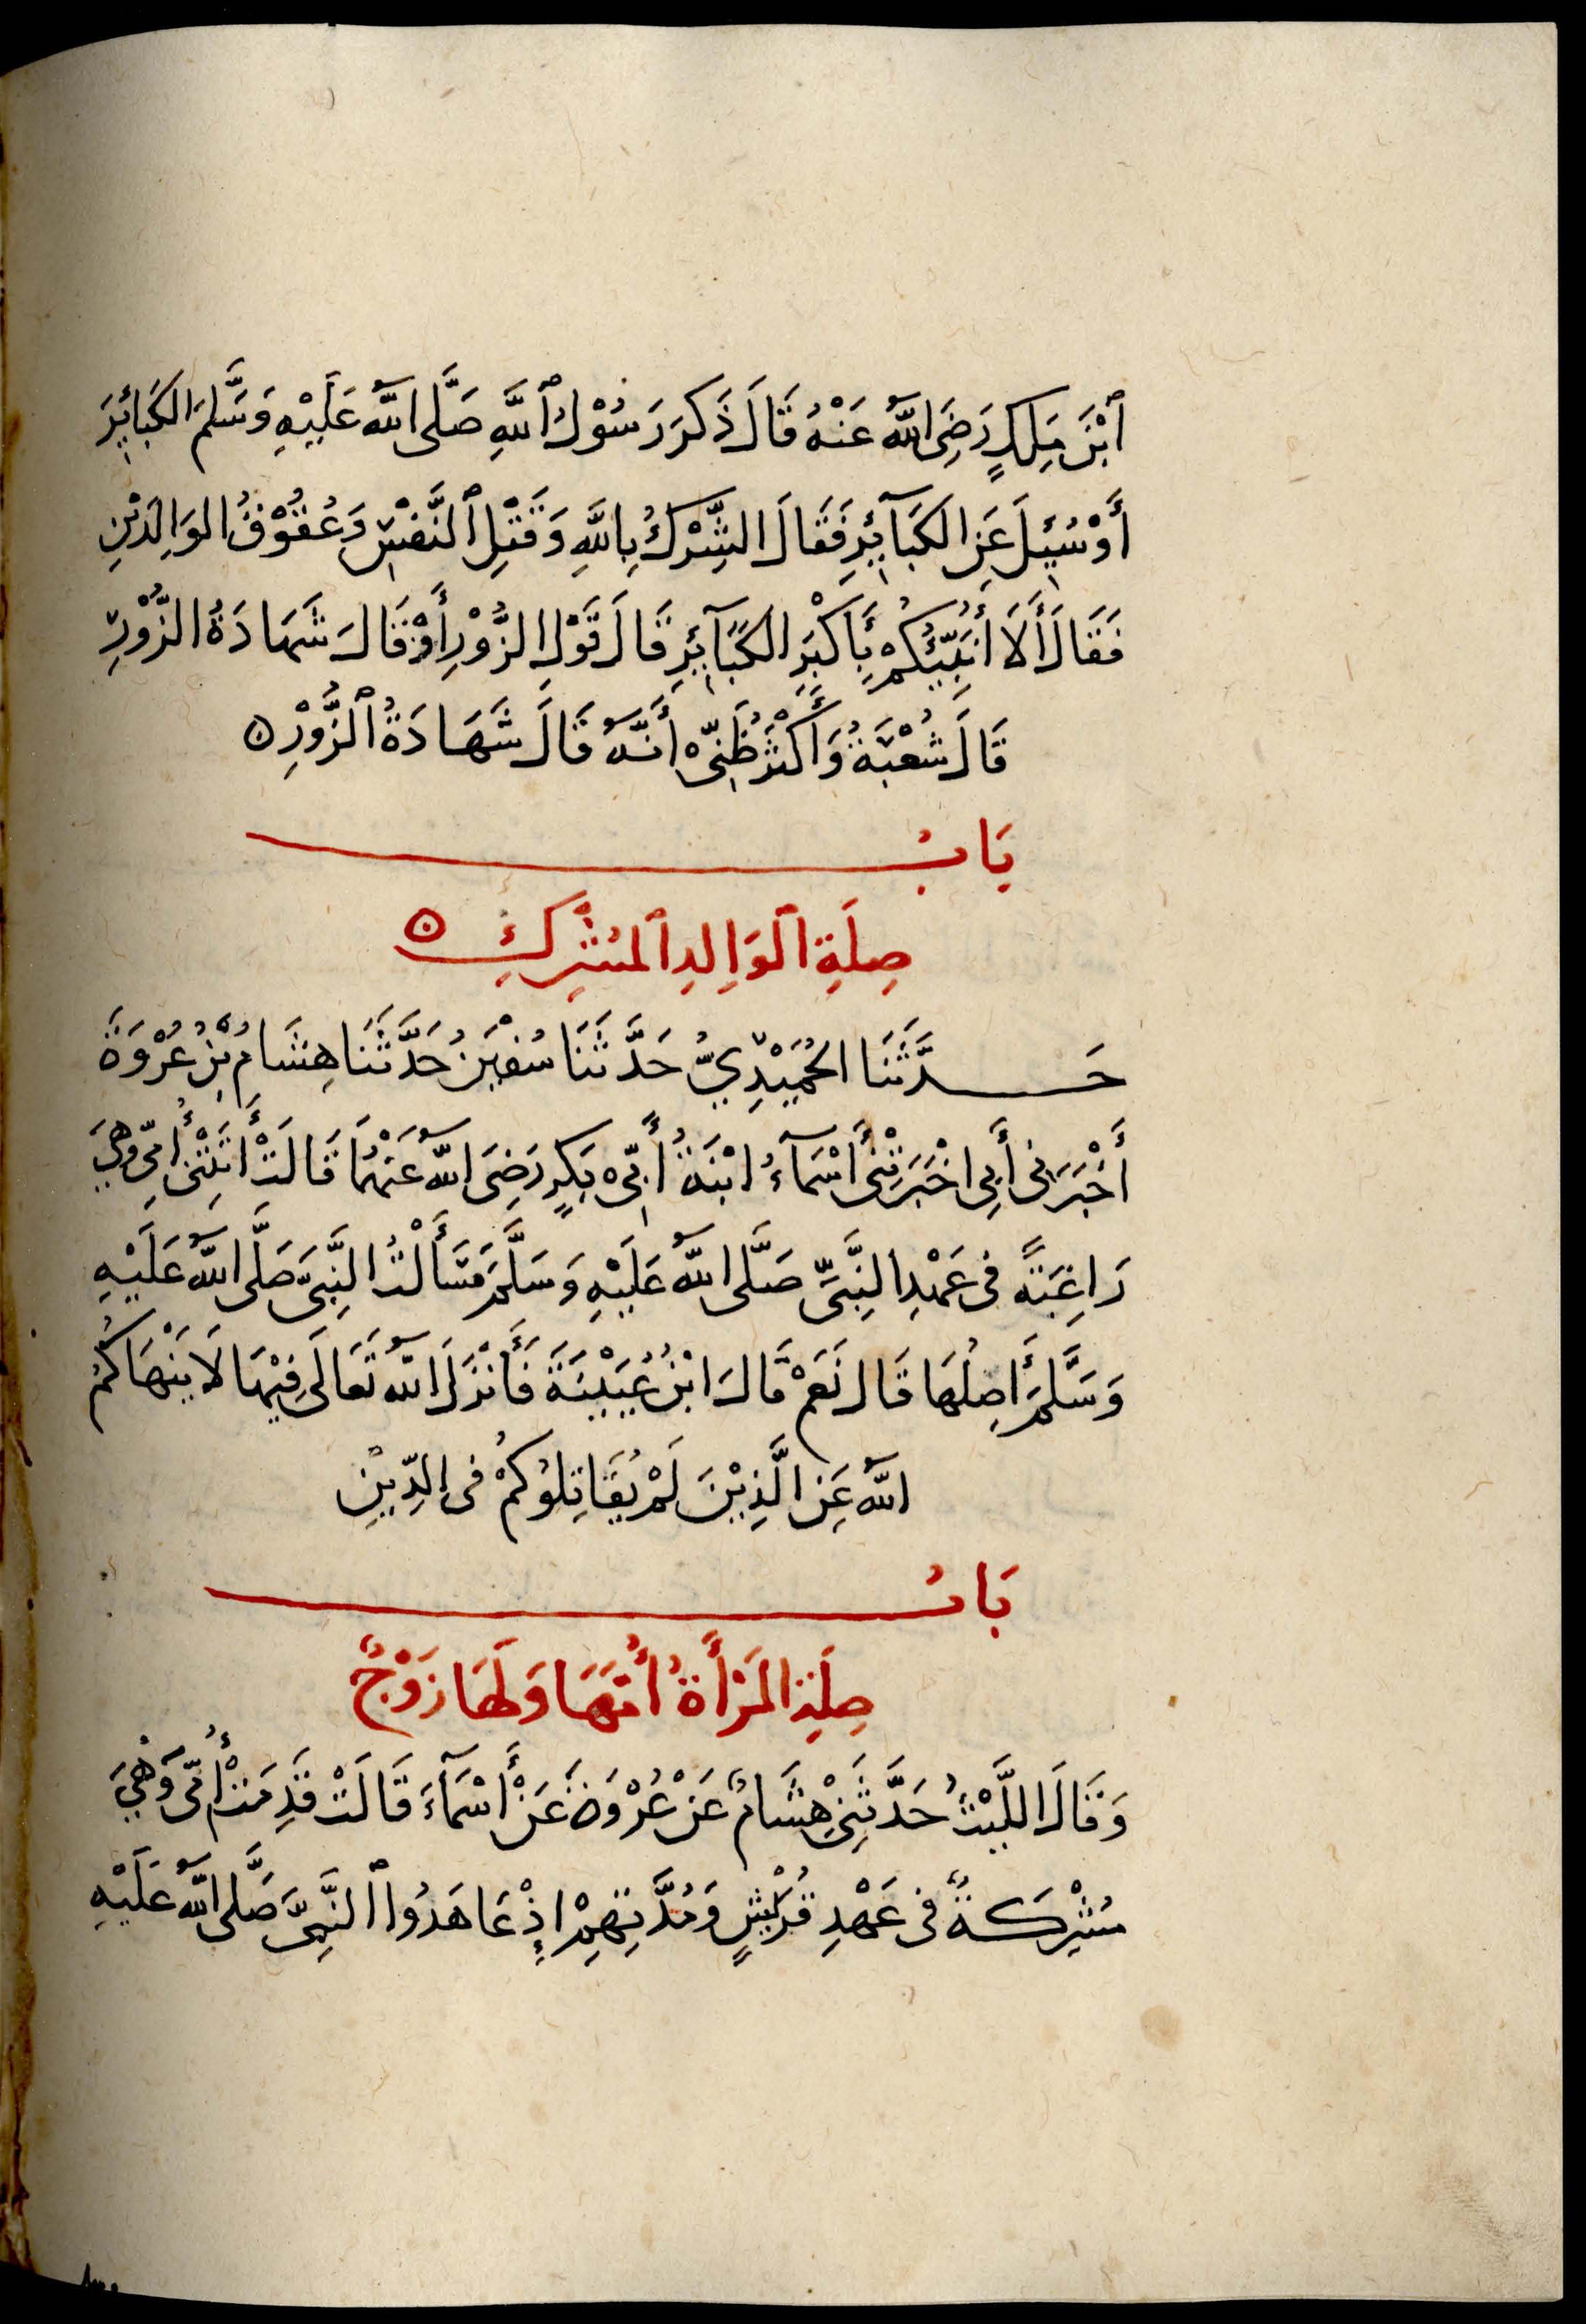 ٱبْنَ مَٰلِكٍ رَضِيَ اللهُ عَنْهُ قَالَ ذَكَرَ رَسُوْلُ ٱللَّهِ صَلَّى اللهُ عَلَيْهِ وَسَلَّمَ الكَبَائِرَ
أَوْ سُئِلَ عَنِ الكَبَآئِرِ فَقَالَ الشِّرْكُ بِاللَّهِ وَقَتْلِ ٱلنَّفْسِ وَعُقُوْقُ الوَالِدَيْنِ
فَقَالَ أَلَا أُنَبِّئُكُمْ بِأَكْبَرِ الكَبَآئِرِ قَالَ قَوْلِ الزُّوْرِ أَوْ قَالَ شَهَادَةُ الزُّوْرِ
قَالَ شُعْبَةُ وَأَكْثَرُ ظَنِّىْ أَنَّهُ قَالَ شَهَادَةُ ٱلزُّوْرِ ه
بَابُ
صِلَةِ ٱلوَالِدِ ٱلمُشْرِكِ ه
حَدَّثَنَا الحُمَيْدِيُّ حَدَّثَنَا سُفْيٰنُ حَدَّثَنَا هِشَامُ بْنُ عُرْوَةَ
أَخْبَرَنِى أَبِى اخْبَرَتْنِى أَسْمَآءُ ابْنَةُ أَبِىْ بَكْرٍ رَضِيَ اللهُ عَنْهُمَا قَالَتْ أَتَتْنِى أُمِّى وَهِيَ
رَاغِبَةً فِى عَهْدِ النَّبِىِّ صَلَّى اللهُ عَلَيْهِ وَسَلَّمَ فَسَأَلْتُ النَّبِىَّ صَلَّى اللهُ عَلَيْهِ
وَسَلَّمَ أَصِلُهَا قَالَ نَعَمْ قَالَ ابْنُ عُيَيْنَةَ فَأَنْزَلَ اللهُ تَعَالَى فِيْهَا لَا يَنْهَاكُمُ
اللهُ عَنِ الَّذِيْنَ لَمْ يُقَاتِلُوْكُمْ فِى الدِّيْنِ
بَابُ
صِلَةِ المَرْأَةُ أُمَّهَا وَلَهَا زَوْجٌ
وَقَالَ اللَّيْثُ حَدَّثَنِىْ هِشَامٌ عَنْ عُرْوَةَ عَنْ أَسْمَآءَ قَالَتْ قَدِمَتْ أُمِّى وَهْيَ
مُشْرِكَةٌ فِى عَهْدِ قُرَيْشٍ وَمُدَّتِهِمْ إِذْ عَاهَدُوا ٱلنَّبِىَّ صَلَّى اللهُ عَلَيْهِ